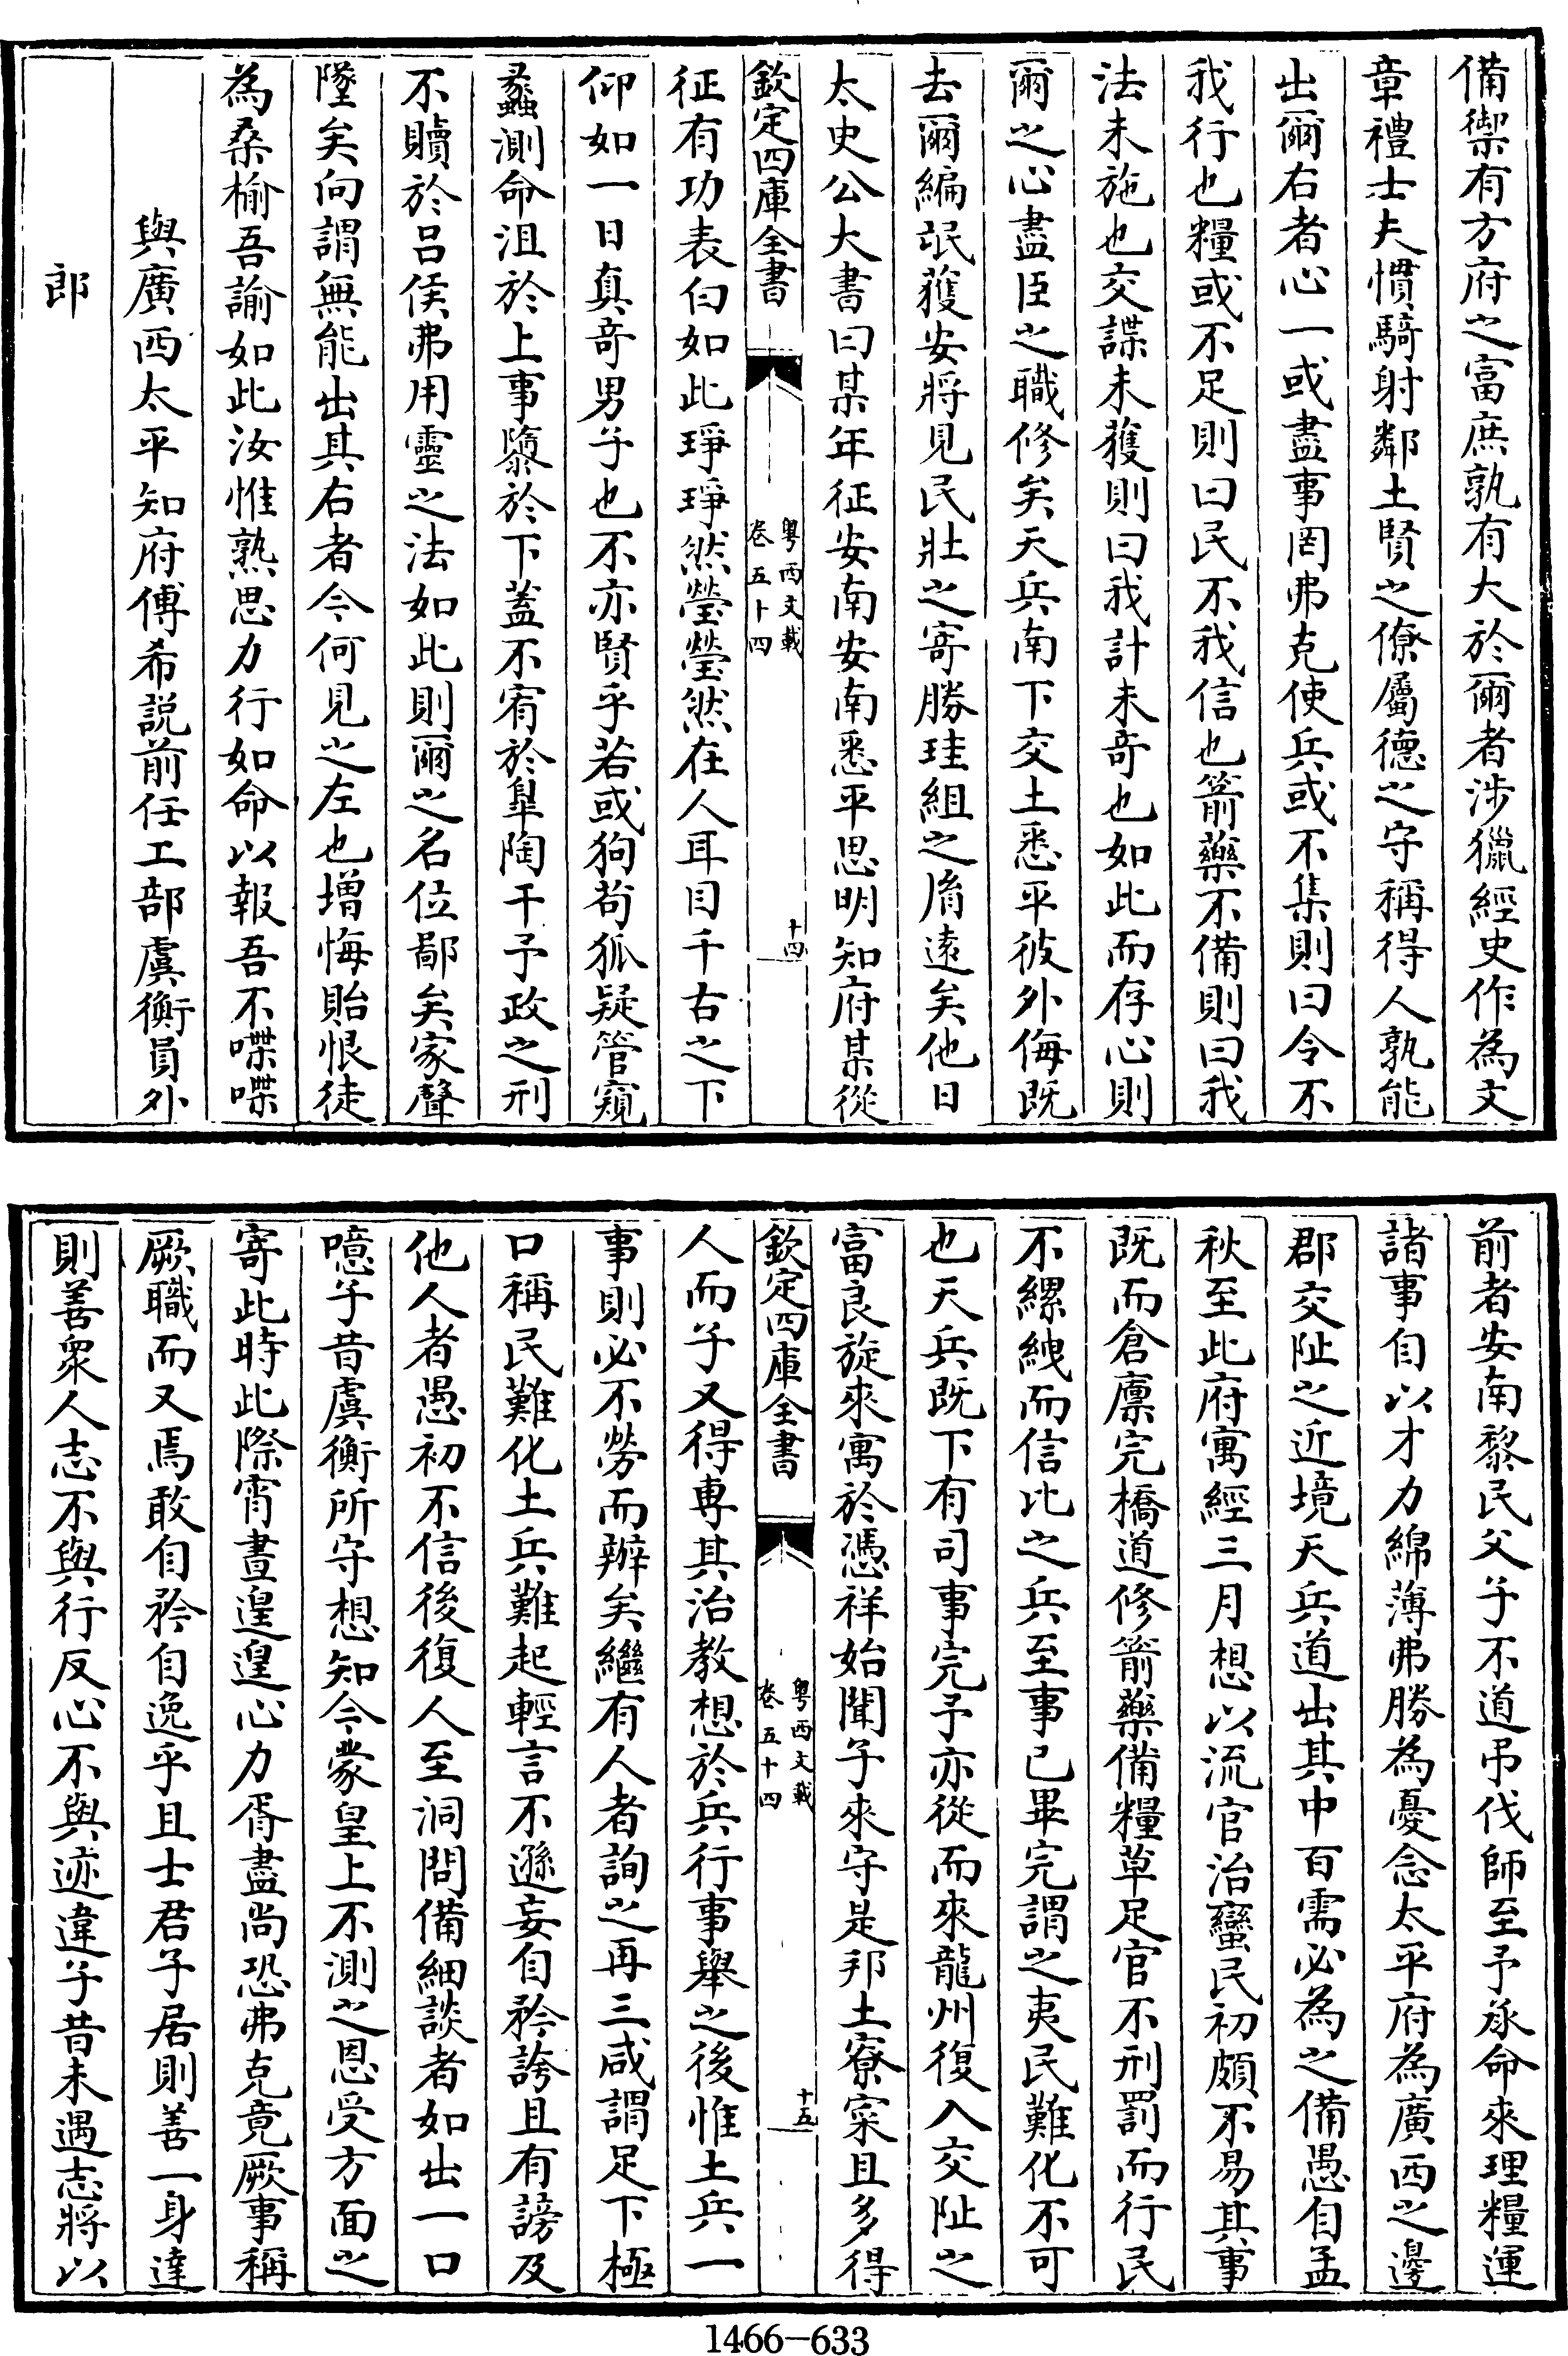 備禦有方府之富庶孰有大於爾者涉獵經史作為文
章禮士夫慣騎射鄰土賢之僚屬德之守稱得人孰能
出爾右者心一或盡事罔弗克使兵或不集則曰令不
我行也糧或不足則曰民不我信也箭藥不備則曰我
法未施也交諜未獲則曰我計未奇也如此而存心則
爾之心盡臣之職修矣天兵南下交土悉平彼外侮既
去爾編氓獲安將見民壯之寄勝珪組之𦙍遠矣他日
太史公大書曰某年征安南安南悉平思明知府某從
欽定四庫全書
粤西文載
卷五十四
十四
征有功表白如此琤琤然瑩瑩然在人耳目千古之下
仰如一日真奇男子也不亦賢乎若或狗苟狐疑管窺
蠡測命沮於上事隳於下蓋不宥於臯陶干予政之刑
不贖於吕侯弗用靈之法如此則爾之名位鄙矣家聲
墜矣向謂無能出其右者今何見之左也增悔貽恨徒
為桑榆吾諭如此汝惟熟思力行如命以報吾不喋喋
與廣西太平知府傅希説前任工部虞衡員外
郎
前者安南黎民父子不道弔伐師至予承命來理糧運
諸事自以才力綿薄弗勝為憂念太平府為廣西之邊
郡交阯之近境天兵道出其中百需必為之備愚自孟
秋至此府寓經三月想以流官治蠻民初頗不易其事
既而倉廪完橋道修箭藥備糧草足官不刑罰而行民
不縲絏而信比之兵至事已畢完謂之夷民難化不可
也天兵既下有司事完予亦從而來龍州復入交阯之
富良旋來寓於憑祥始聞子來守是邦土寮寀且多得
欽定四庫全書
粤西文載
卷五十四
十五
人而子又得專其治教想於兵行事舉之後惟土兵一
事則必不勞而辦矣繼有人者詢之再三咸謂足下極
口稱民難化土兵難起輕言不遜妄自矜誇且有謗及
他人者愚初不信後復人至洞問備細談者如出一口
噫子昔虞衡所守想知今蒙皇上不測之恩受方面之
寄此時此際宵晝遑遑心力胥盡尚恐弗克竟厥事稱
厥職而又焉敢自矜自逸乎且士君子居則善一身達
則善衆人志不與行反心不與迹違子昔未遇志將以
1466-633